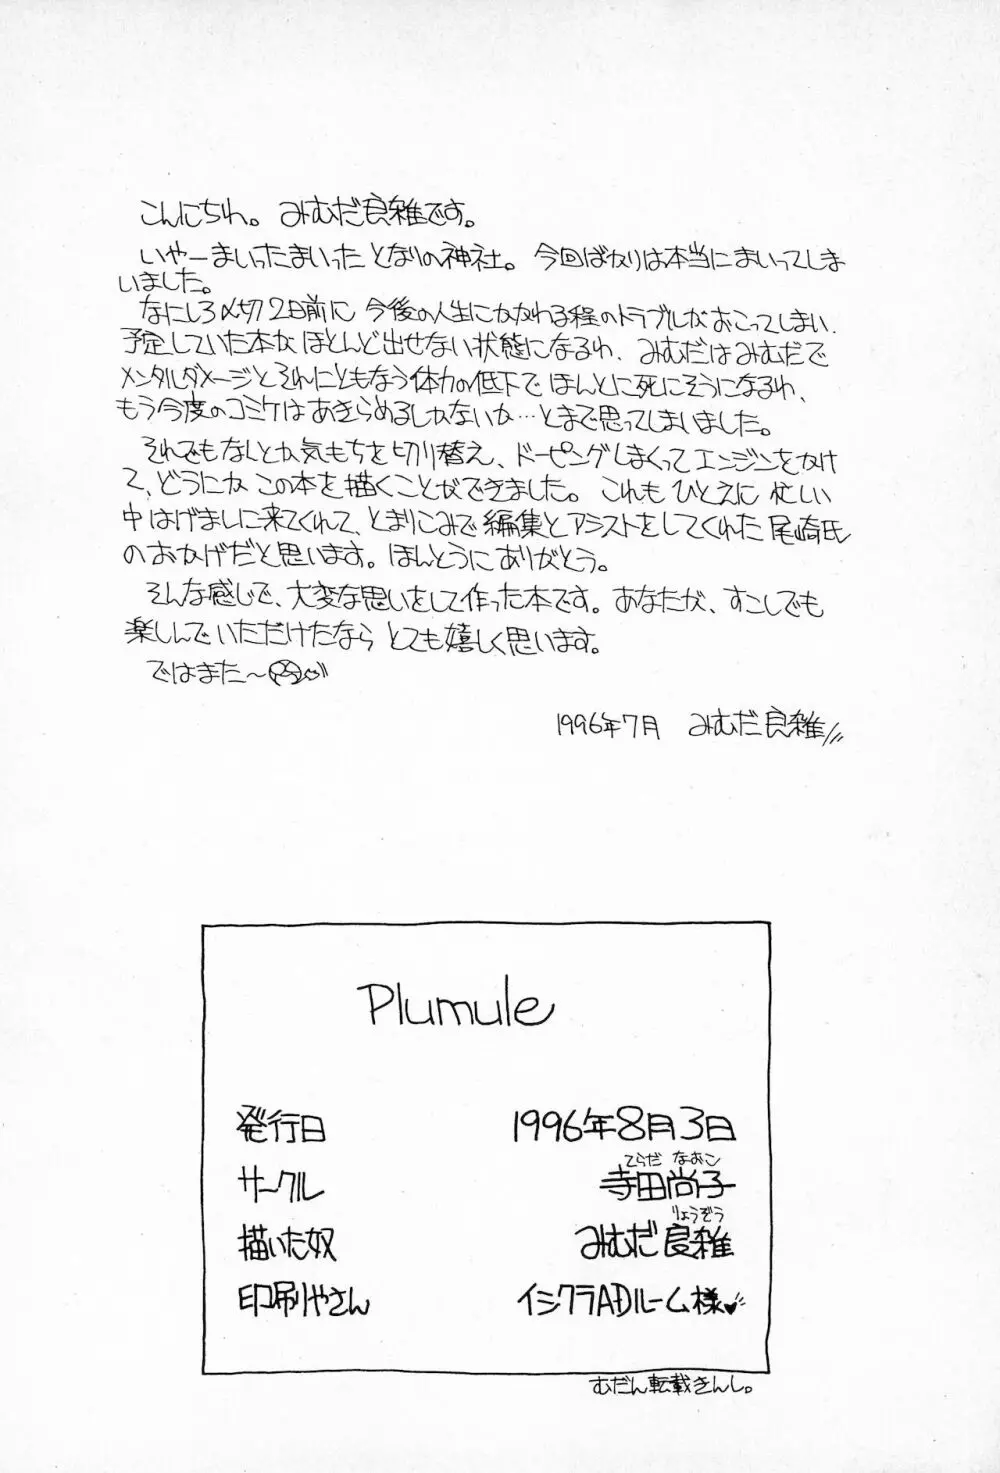 こんにちわ。みむだ良雑です。
いやーまいったまいったとなりの神社。今回ばかりは本当にまいってしま
いました。
なにしろ〆切2日前に今後の人生にかかわる程のトラブルがおこってしまい、
予定していた本がほとんど出せない状態になるわ、みむだはみむだで
メンタルダメージとそれにともなう体力の低下でほんとに死にそうになるわ、
もう今度のコミケはあきらめるしかないか…とまで思ってしまいました。
それでもなんとか気もちを切り替え、ドーピングしまくってエンジンをかけ
て、どうにかこの本を描くことができました。これもひとえに忙しい
中はげましに来てくれて、とまりこみで編集とアシストをしてくれた尾崎氏
のおかげだと思います。ほんとうにありがとう。
そんな感じで、大変な思いをして作った本です。あなたが、すこしでも
楽しんでいただけたならとても嬉しく思います。
ではまた〜
1996年7月 みむだ良雑
Plumule
発行日 1996年8月3日
てらだ なおこ
サークル 寺田尚子
りょうぞう
描いた奴 みむだ良雑
印刷やさん イシクラADルーム様♥
むだん転載きんし。